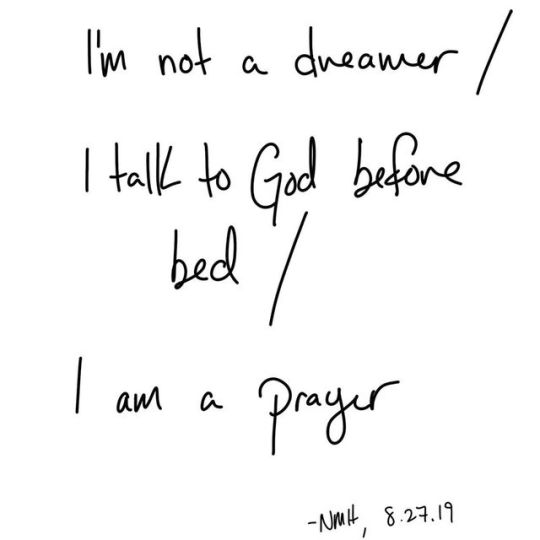 I'm not a dreamer /
I talk to God before
bed /
I am a prayer
-NMH, 8.27.19